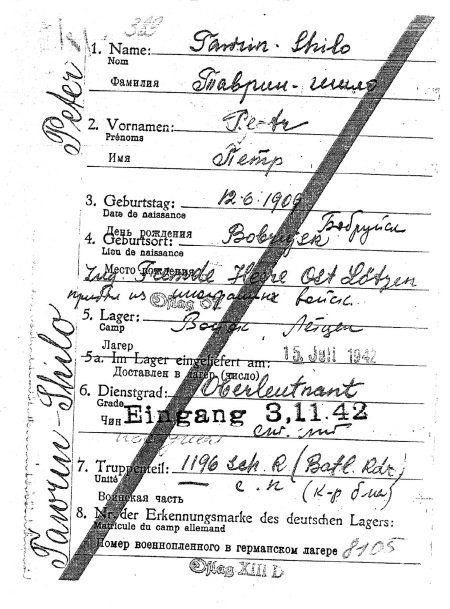 1. Name: Tawrin-Shilo
Nom
Фамилия Таврин-шило
2. Vornamen: Petr
Prénoms
Имя Петр
3. Geburtstag: 12.6.1909
Date de naissance
День рождения
4. Geburtsort: Bobrujsk Бобруйск
Lieu de naissance
Место рождения
Zug. Fremde Heere Ost Lötzen
прибыл из войск
Oflag
5. Lager: Лётцен
Camp
Лагер
5a. Im Lager eingeliefert am: 15. Juli 1942
Доставлен в лагер (число)
6. Dienstgrad: Oberleutnant
Grade
Чин
Eingang 3.11.42
7. Truppenteil: 1196 Sch. R (Batl. Kdr)
Unité
с. п (к-р б-на)
Воинская часть
8. Nr. der Erkennungsmarke des deutschen Lagers:
Matricule du camp allemand
Номер военнопленного в германском лагере 8105
Oflag XIII D
Peter
Tawrin-Shilo